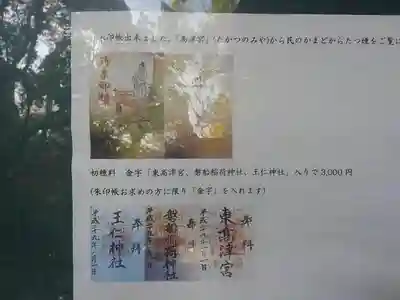 朱印帳出来ました。「高津宮」(たかつのみや)から民のかまどからたつ煙をご覧に
御朱印帳
初穂料　金字「東高津宮、磐船稲荷神社、王仁神社」入りで3,000円
(朱印帳お求めの方に限り「金字」を入れます)
奉拝
東高津宮
奉拝
磐船稲荷神社
奉拝
王仁神社
平成二十九年一月一日